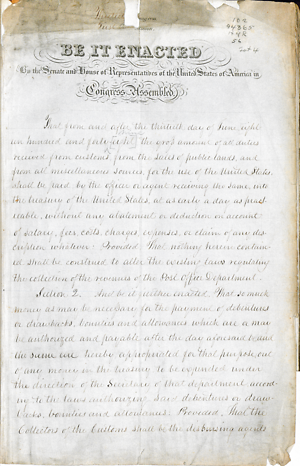 BE IT ENACTED
By the Senate and House of Representatives of the United States of America in
Congress Assembled,
That from and after the thirtieth day of June, eigh
teen hundred and forty-eight, the gross amount of all duties
received from customs, from the sales of public lands, and
from all miscellaneous sources, for the use of the United States,
shall be paid by the officer or agent receiving the same, into
the treasury of the United States, at as early a day as pract-
icable, without any abatement or deduction on account
of salary, fees, costs, charges, expenses, or claim of any des-
cription whatever: Provided That nothing herein contain-
ed shall be construed to alter the existing laws regulating
the collection of the revenues of the Post Office Department.
Section 2. And be it further enacted. That so much
money as may be necessary for the payment of debentures
or drawbacks, bounties and allowances which are or may
be authorized and payable after the day aforesaid and
the same are hereby appropriated for that purpose, out
of any money in the treasury to be expended under
the direction of the Secretary of that department accord-
ing to the laws authorizing said debentures or draw-
backs, bounties and allowances: Provided, That the
Collectors of the Customs shall be the disbursing agents